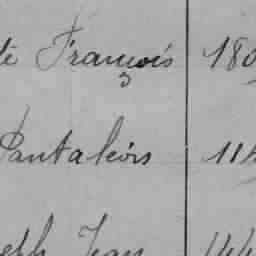 te François 180
Pantaléon 114
eph Jean 144